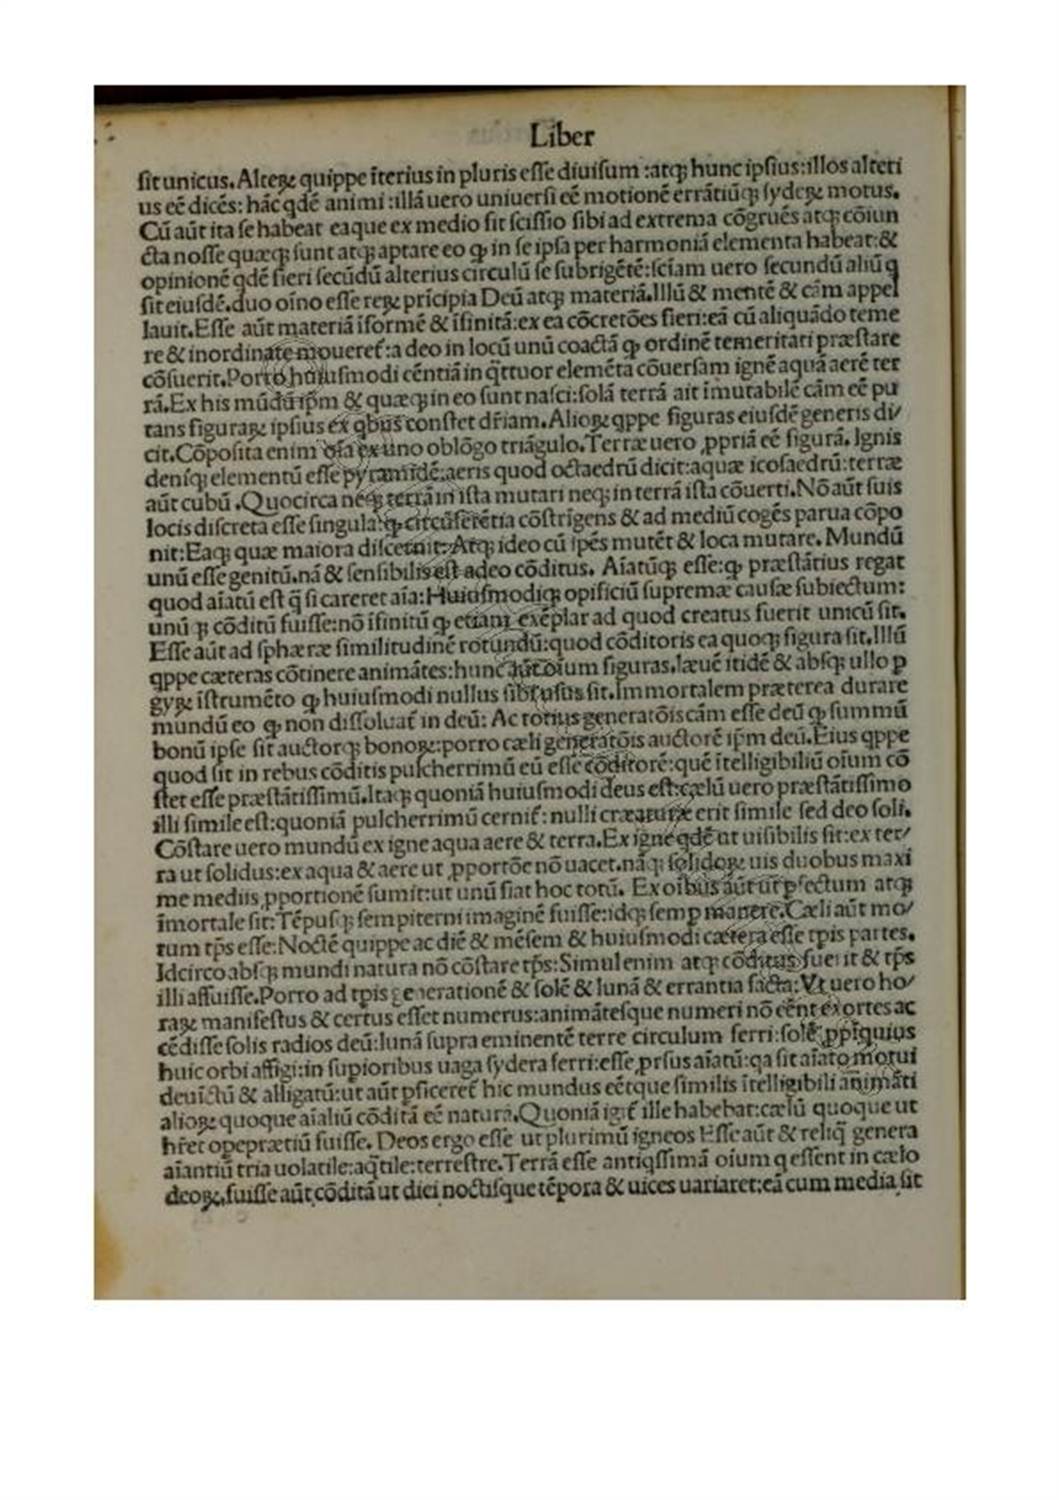 Liber
ſit unicus. Alteꝝ quippe ĩterius in pluris eſſe diuiſum :atqꝫ hunc ipſius:illos alteri
us eẽ dicẽs: hãc qdẽ animi :illã uero uniuerſi eẽ motionẽ errãtiũqꝫ ſydeꝝ motus.
Cũ aũt ita ſe habeat eaque ex medio fit ſciſſio ſibi ad extrema cõgruẽs atqꝫ cõiun
cta noſſe quæqꝫ ſunt atqꝫ aptare eo ꝙ in ſe ipſa per harmoniã elementa habeat:&
opinionẽ qdẽ fieri ſecũdũ alterius circulũ ſe ſubrigẽtẽ:ſciam uero ſecundũ aliũ q
ſit eiuſdẽ.duo oĩno eſſe reꝝ prĩcipia Deũ atqꝫ materiã.Illũ & mentẽ & cãm appel
lauit.Eſſe aũt materiã ĩformẽ & ĩfinitã:ex ea cõcretões fieri:eã cũ aliquãdo teme
re & inordinate moueret̃:a deo in locũ unũ coactã ꝙ ordinẽ temeritati præſtare
cõſuerit.Porro huiuſmodi cẽntiã in q̃ttuor elemẽta cõuerſam ignẽ aquã aerẽ ter
rã.Ex his mũdũ ip̃m & quæqꝫ in eo ſunt naſci:ſolã terrã ait ĩmutabilẽ cãm eẽ pu
tans figuraꝝ ipſius ex qbus conſtet dr̃iam.Alioꝝ qppe figuras eiuſdẽ generis di/
cit.Cõpoſita enim oĩa ex uno oblõgo triágulo.Terræ uero ꝓpriã eẽ figurã. Ignis
deniqꝫ elementũ eſſe pyramidẽ:aeris quod octaedrũ dicit:aquæ icoſaedrũ:terræ
aũt cubũ .Quocirca neqꝫ terrã in iſta mutari neqꝫ in terrã iſta cõuerti.Nõ aũt ſuis
locis diſcreta eſſe ſingula:ꝙ circũferẽtia cõſtrĩgens & ad mediũ cogẽs parua cõpo
nit:Eaqꝫ quæ maiora diſcernit:Atqꝫ ideo cũ ſpẽs mutẽt & loca mutare. Mundũ
unũ eſſe genitũ.nã & ſenſibilis eſt a deo cõditus. Aĩatũqꝫ eſſe:ꝙ præſtãtius regat
quod aĩatũ eſt q̃ ſi careret aĩa:Huiuſmodiqꝫ opificiũ ſupremæ cauſæ ſubiectum:
unũ qꝫ cõditũ fuiſſe:nõ ĩfinitũ ꝙ etiam exẽplar ad quod creatus fuerit unicũ ſit.
Eſſe aũt ad ſphæræ ſimilitudinẽ rotundũ:quod cõditoris ea quoqꝫ figura ſit.Illũ
qppe cæteras cõtinere animãtes:hunc aũt oium figuras.læuẽ itidẽ & abſqꝫ ullo ꝑ
gyꝝ ĩſtrumẽto ꝙ huiuſmodi nullus ſibi uſus ſit.Immortalem præterea durare
mundũ eo ꝙ non diſſoluat̃ in deũ: Ac totius generatõis cãm eſſe deũ ꝙ ſummũ
bonũ ipſe ſit auctorqꝫ bonoꝝ:porro cæli generatõis auctorẽ ip̃m deũ.Eius qppe
quod ſit in rebus cõditis pulcherrimũ eũ eſſe cõditorẽ:quẽ ĩtelligibiliũ oĩum cõ
ſtet eſſe præſtãtiſſimũ.Itaqꝫ quoniã huiuſmodi deus eſt:cælũ uero præſtãtiſſimo
illi ſimile eſt:quoniã pulcherrimũ cernit̃: nulli cræaturæ erit ſimile ſed deo ſoli.
Cõſtare uero mundũ ex igne aqua aere & terra.Ex igne qdẽ ut uiſibilis ſit:ex ter/
ra ut ſolidus:ex aqua & aere ut ꝓportõe nõ uacet.nãqꝫ ſolidoꝝ uis duobus maxi
me mediis ꝓportionẽ ſumit:ut unũ fiat hoc totũ. Ex oĩbus aũt ut ꝑfectum atqꝫ
ĩmortale ſit: Tẽpuſqꝫ ſempiterni imaginẽ fuiſſe:idqꝫ ſemꝑ manere.Cæli aũt mo/
tum tp̃s eſſe:Noctẽ quippe ac diẽ & mẽſem & huiuſmodi cætera eſſe tp̃is partes.
Idcirco abſqꝫ mundi natura nõ cõſtare tp̃s:Simul enim atqꝫ cõditus fuerit & tp̃s
illi affuiſſe.Porro ad tp̃is generationẽ & ſolẽ & lunã & errantia facta:Vt uero ho/
raꝝ manifeſtus & certus eſſet numerus:animãteſque numeri nõ eẽnt exortes ac
cẽdiſſe ſolis radios deũ:lunã ſupra eminentẽ terre circulum ferri:ſolẽ ꝓpĩquius
huic orbi affigi:in ſuꝑioribus uaga ſydera ferri:eſſe ꝓrſus aĩatũ:qa ſit aĩato motui
deuĩctũ & alligatũ:ut aũt ꝑficeret̃ hic mundus eẽtque ſimilis ĩtelligibili animãti
alioꝝ quoque aĩaliũ cõditã eẽ naturã.Quoniã igit̃ ille habebat:cælũ quoque ut
hr̃et opeprætiũ fuiſſe. Deos ergo eſſe ut plurimũ igneos Eſſe aũt & reliq̃ genera
aĩantiũ tria uolatile:aq̃tile:terreſtre.Terrã eſſe antiqſſimã oĩum q eſſent in cælo
deoꝝ.fuiſſe aũt cõditã ut diei noctiſque tẽpora & uices uariaret:eã cum media ſit